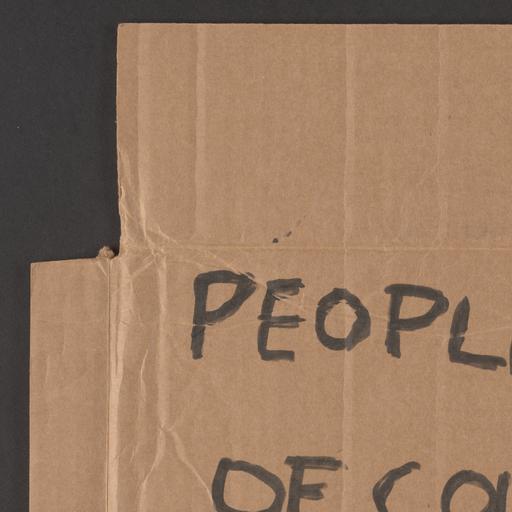 PEOPL
OF CO